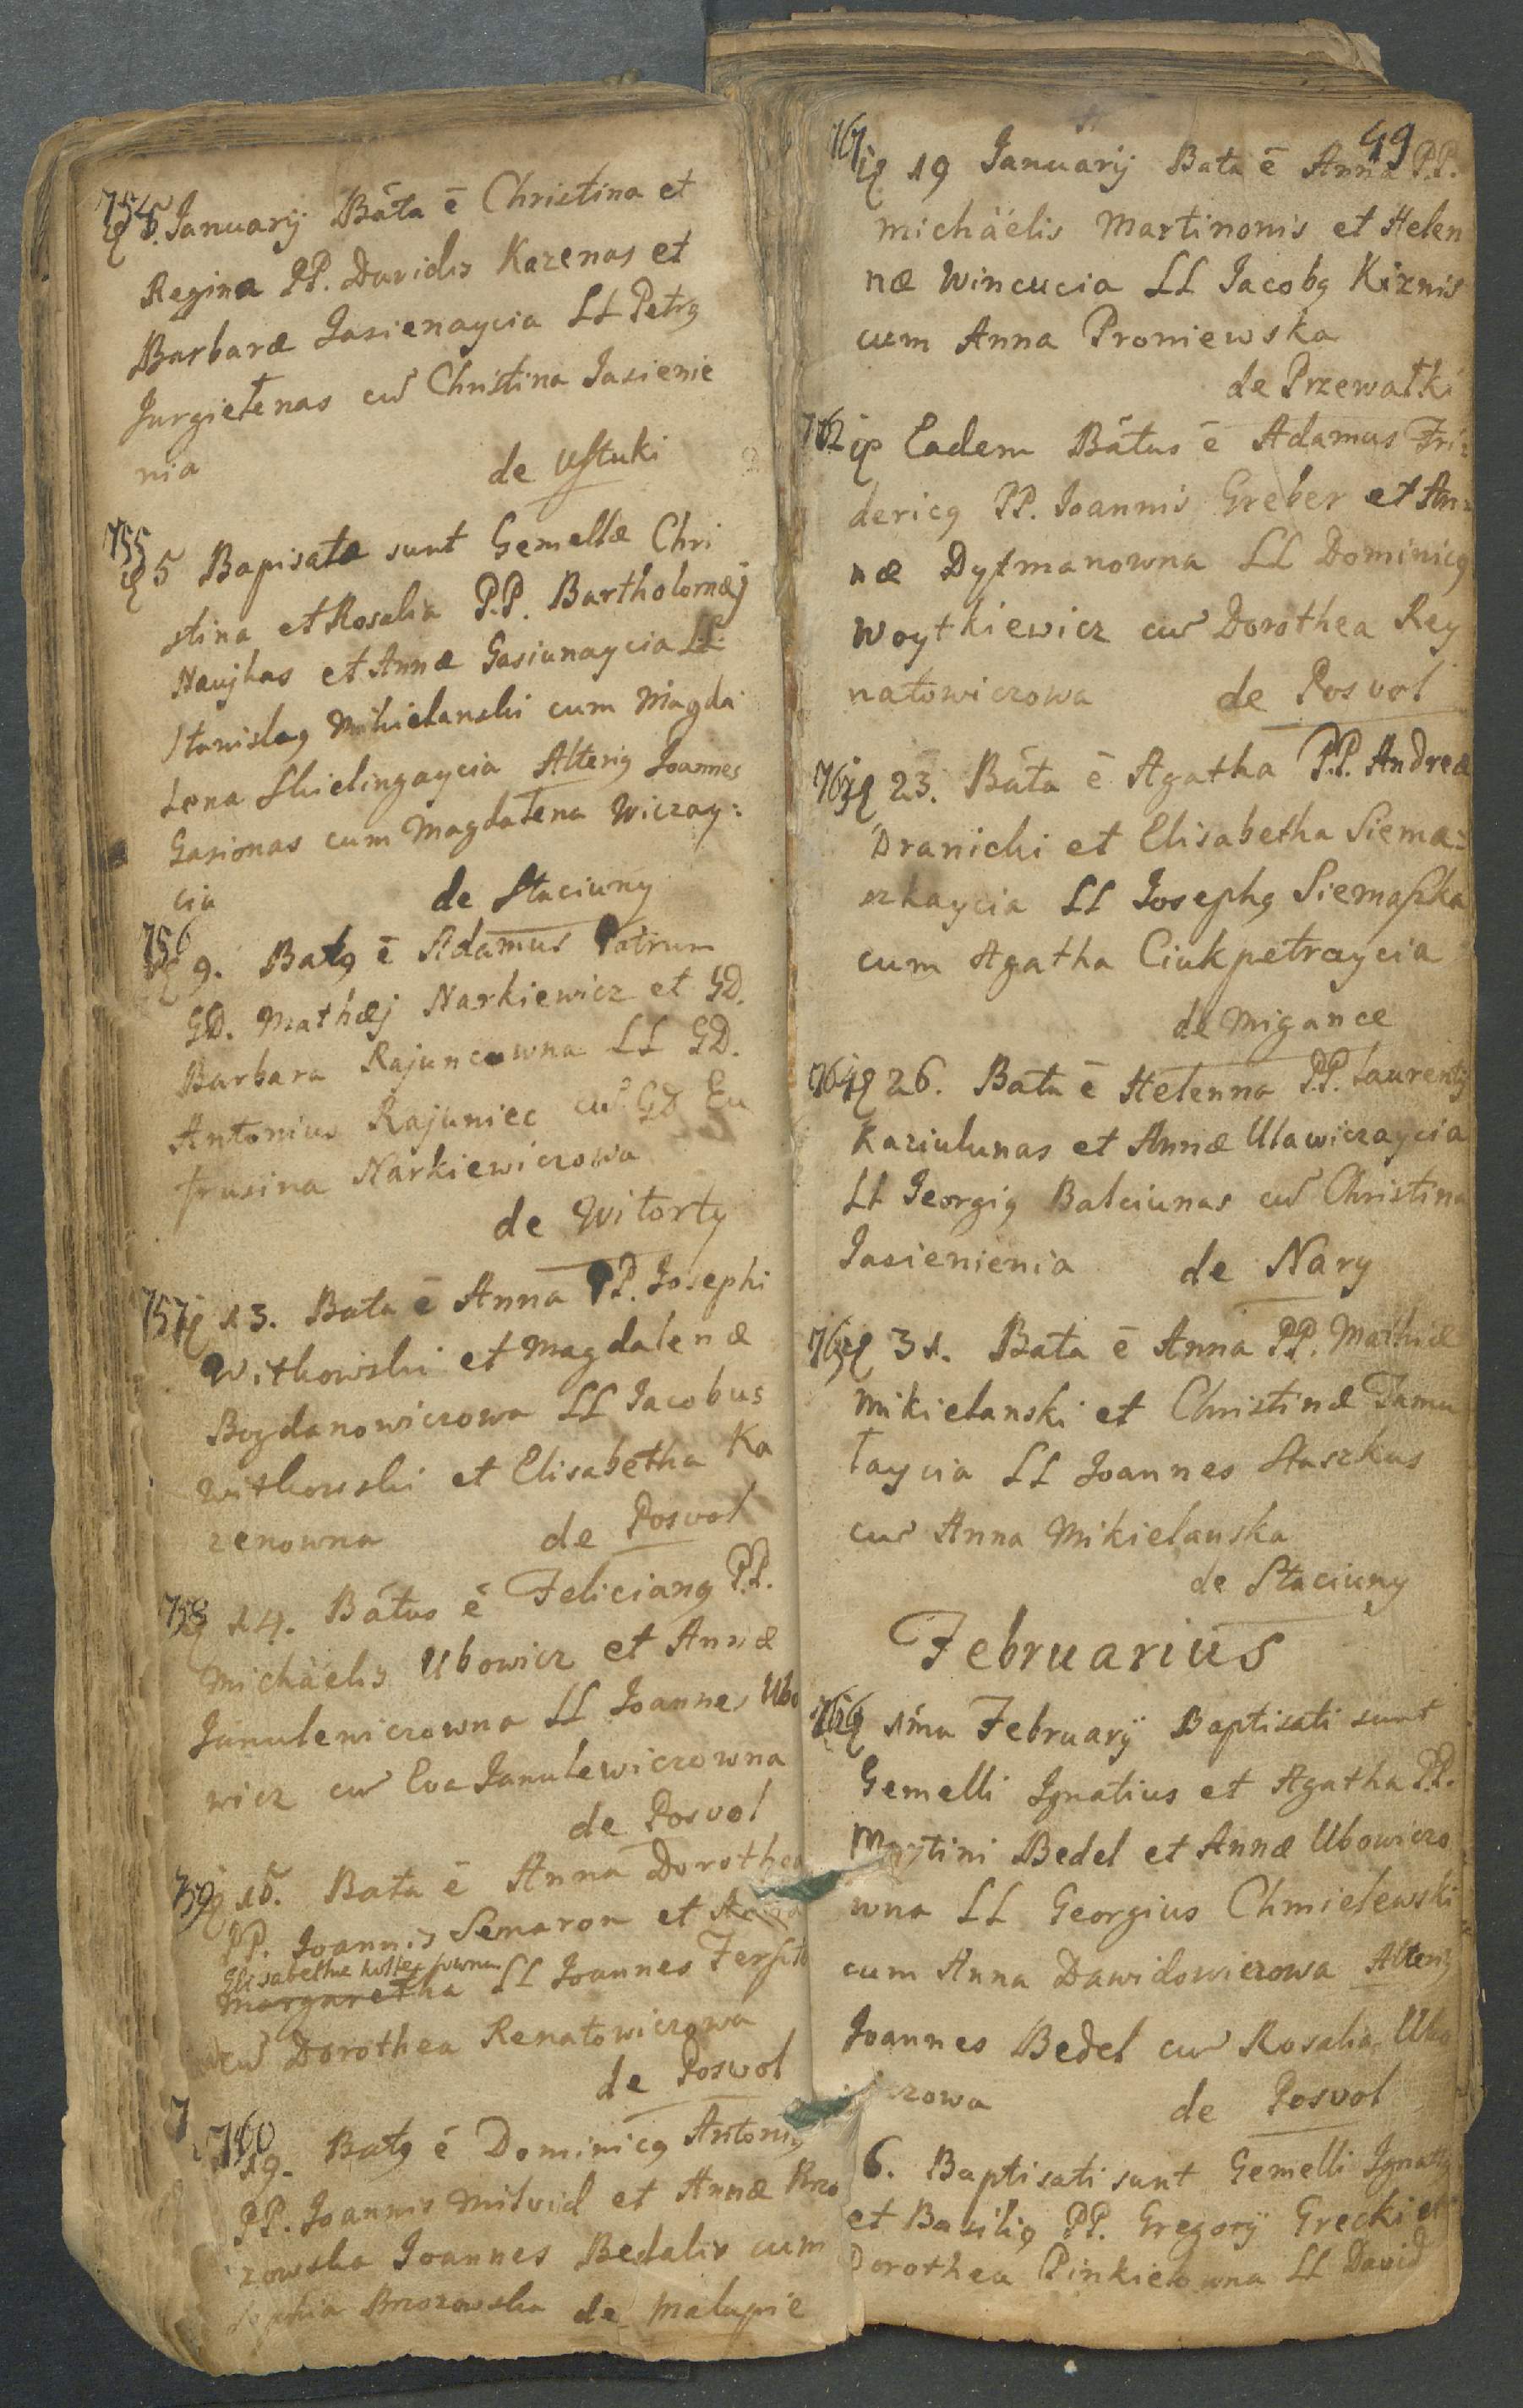 754
5. Januarÿ Bata ē Christina et
Regina PP. Davidis Kazenas et
Barbaræ Jasienaycia LL Petrꝯ
Jurgielenas cū Christina Jasienie
nia de Ustuki
755
5 Bapisatæ sunt Gemellæ Chri
stina et Rosalia P.P. Bartholomæj
Naujkas et Annæ Gasiunaycia LL
Stanislaꝯ Mikielanski cum Magda
lena Skielingaycia Alteriꝯ Joannes
Gasionas cum Magdalena Wiczay:
cia de Staciuny
756
9. Batꝯ ē Adamus Patrum
GD. Mathæj Narkiewicz et GD.
Barbara Rajuncowna LL GD.
Antonius Rajuniec cū GD Eu
frusina Narkiewiczowa
de Witorty
757
13. Bata ē Anna PP. Josephi
Witkowski et Magdalenæ
Bogdanowiczowa LL Jacobus
Witkowski et Elisabetha Ka
zenowna de Posvol
758
14. Bátus ē Felicianꝯ P.P.
Michäelis Ubowicz et Annæ
Janulewiczowna LL Joannes Ubo
wicz cū Eva Janulewiczowna
de Posvol
759
15. Bata ē Anna Dorothea
PP. Joannis Semaron et
Elisabethæ
Margaretha LL Joannes
cū Dorothea Renatowiczowa
de Poswol
7
760
19. Batꝯ ē Dominicꝯ Antoniꝯ
PP. Joannis Milvid et Annæ Brzo
zowska Joannes Bedalis cum
Sophia Brzozowska de Malupie
49
761
19 Januarÿ Bata ē Anna P.P.
Michäelis Martinonis et Helen
næ Wincucia LL Jacobꝯ Kirnis
cum Anna Proniewska
de Przewałki
762
Eadem Bátus ē Adamus Fri:
dericꝯ PP. Joannis Greber et An:
næ Dytmanowna LL Dominicꝯ
Woytkiewicz cū Dorothea Rey
natowiczowa de Posvol
763
23. Báta ē Agatha P.P. Andreæ
Dranicki et Elisabetha Siema:
szkaycia LL Josephꝯ Siemaszka
cum Agatha Ciukpetraycia
de Migance
764
26. Bata ē Helenna P.P. Laurentÿ
Kaziulunas et Annæ Ulawiczaycia
LL Georgiꝯ Balciunas cū Christina
Jasienienia de Nary
765
31. Bata ē Anna PP. Mathiæ
Mikielanski et Christinæ Tamu
laycia LL Joannes Staszkus
cū Anna Mikielanska
de Staciuny
Februarius
766
1ma Februarÿ Baptisati sunt
Gemelli Ignatius et Agatha P.P.
Martini Bedel et Annæ Ubowiczo
wna LL Georgius Chmielewski
cum Anna Dawidowiczowa Alteriꝯ
Joannes Bedel cū Rosalia Ubo
iczowa de Posvol
6. Baptisati sunt Gemelli Ignatiꝯ
et Basiliꝯ PP. Gregorÿ Grecki et
Dorothea Pinkielowna LL David